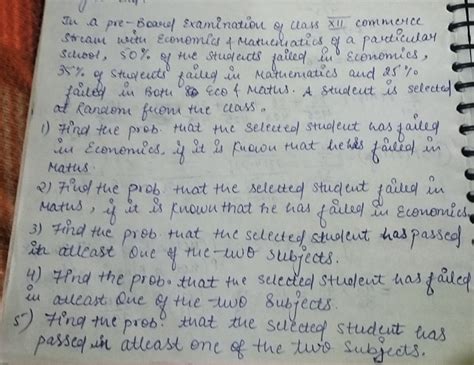 In a pre-Board Examination of class XII commerce
stream with Economics & Mathematics of a particular
School, 50% of the students failed in Economics,
35% of Students failed in Mathematics and 25%
failed in Both Eco & Maths. A student is selected
at Random from the class.
1) Find the prob. that the selected student has failed
in Economics, if it is known that he has failed in
Maths.
2) Find the prob. that the selected student failed in
Maths, if it is known that he has failed in Economics
3) Find the prob. that the selected student has passed
in atleast one of the two subjects.
4) Find the prob. that the selected student has failed
in atleast One of the two Subjects.
5) Find the prob. that the selected student has
passed in atleast one of the two Subjects.